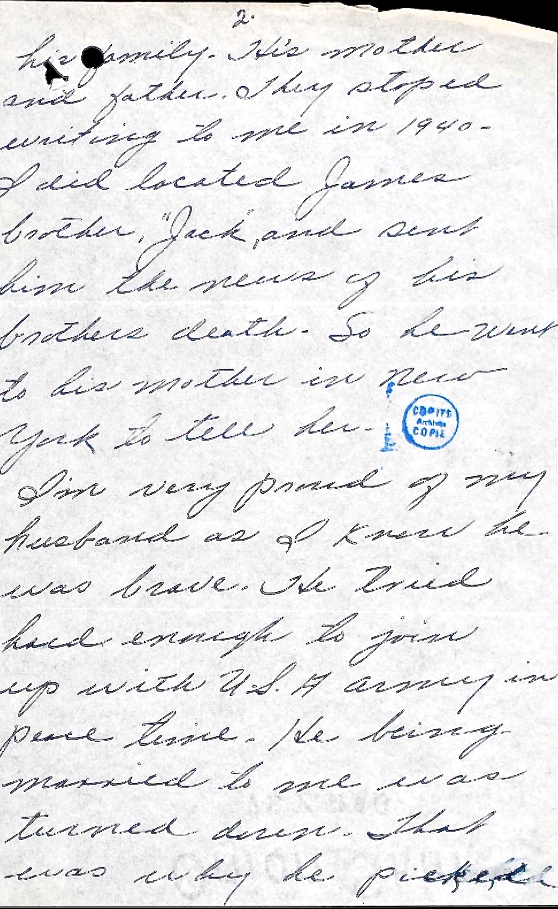 2.
his family. His mother
and father. They stoped
writing to me in 1940-
I did located James
brother, "Jack", and sent
him the news of his
brothers death. So he went
to his mother in new
York to tell her.
COPIE
I'm very proud of my
husband as I know he
was brave. He tried
hard enough to join
up with U.S. A army in
peace time. He being
married to me was
turned down. That
was why he picked